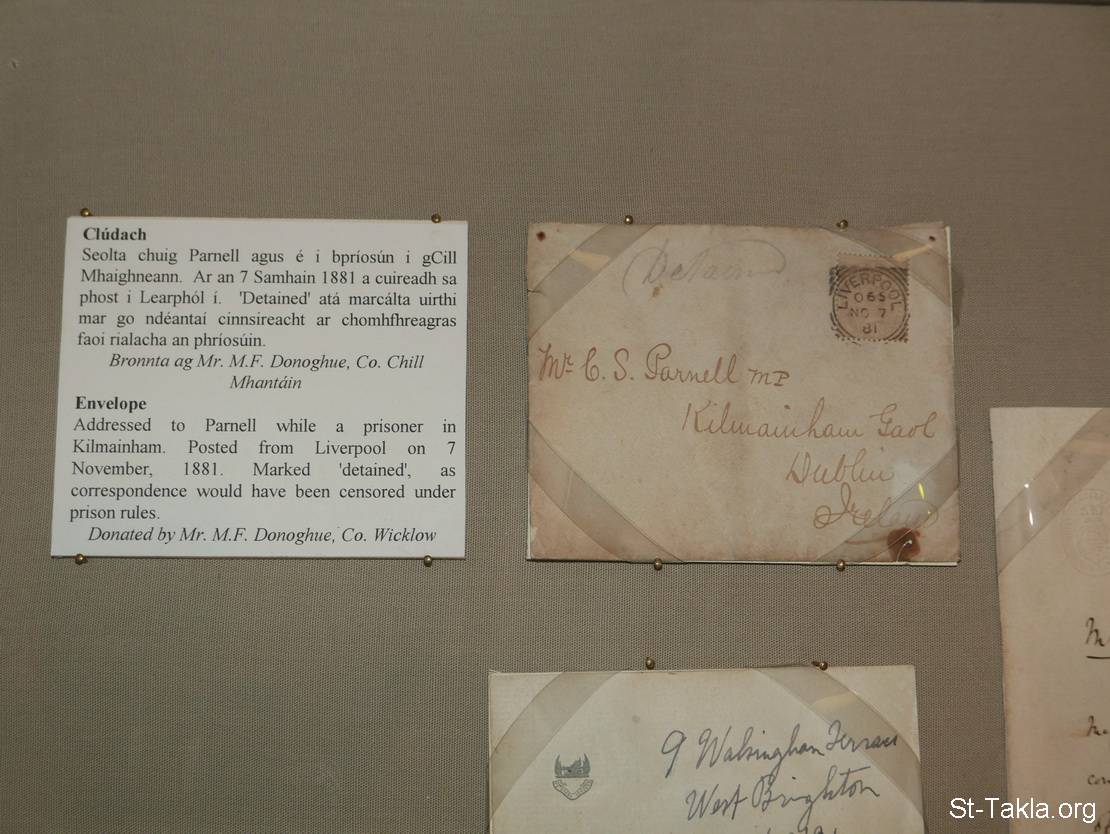 Clúdach
Seolta chuig Parnell agus é i bpríosún i gCill
Mhaighneann. Ar an 7 Samhain 1881 a cuireadh sa
phost i Learphól í. 'Detained' atá marcálta uirthi
mar go ndéantaí cinnsireacht ar chomhfhreagras
faoi rialacha an phríosúin.
Bronnta ag Mr. M.F. Donoghue, Co. Chill
Mhantáin
Envelope
Addressed to Parnell while a prisoner in
Kilmainham. Posted from Liverpool on 7
November, 1881. Marked 'detained', as
correspondence would have been censored under
prison rules.
Donated by Mr. M.F. Donoghue, Co. Wicklow
Detained
LIVERPOOL
NO 7
81
Mr. C. S. Parnell MP
Kilmainham Gaol
Dublin
Ireland
9 Walsingham Terrace
West Brighton
St-Takla.org